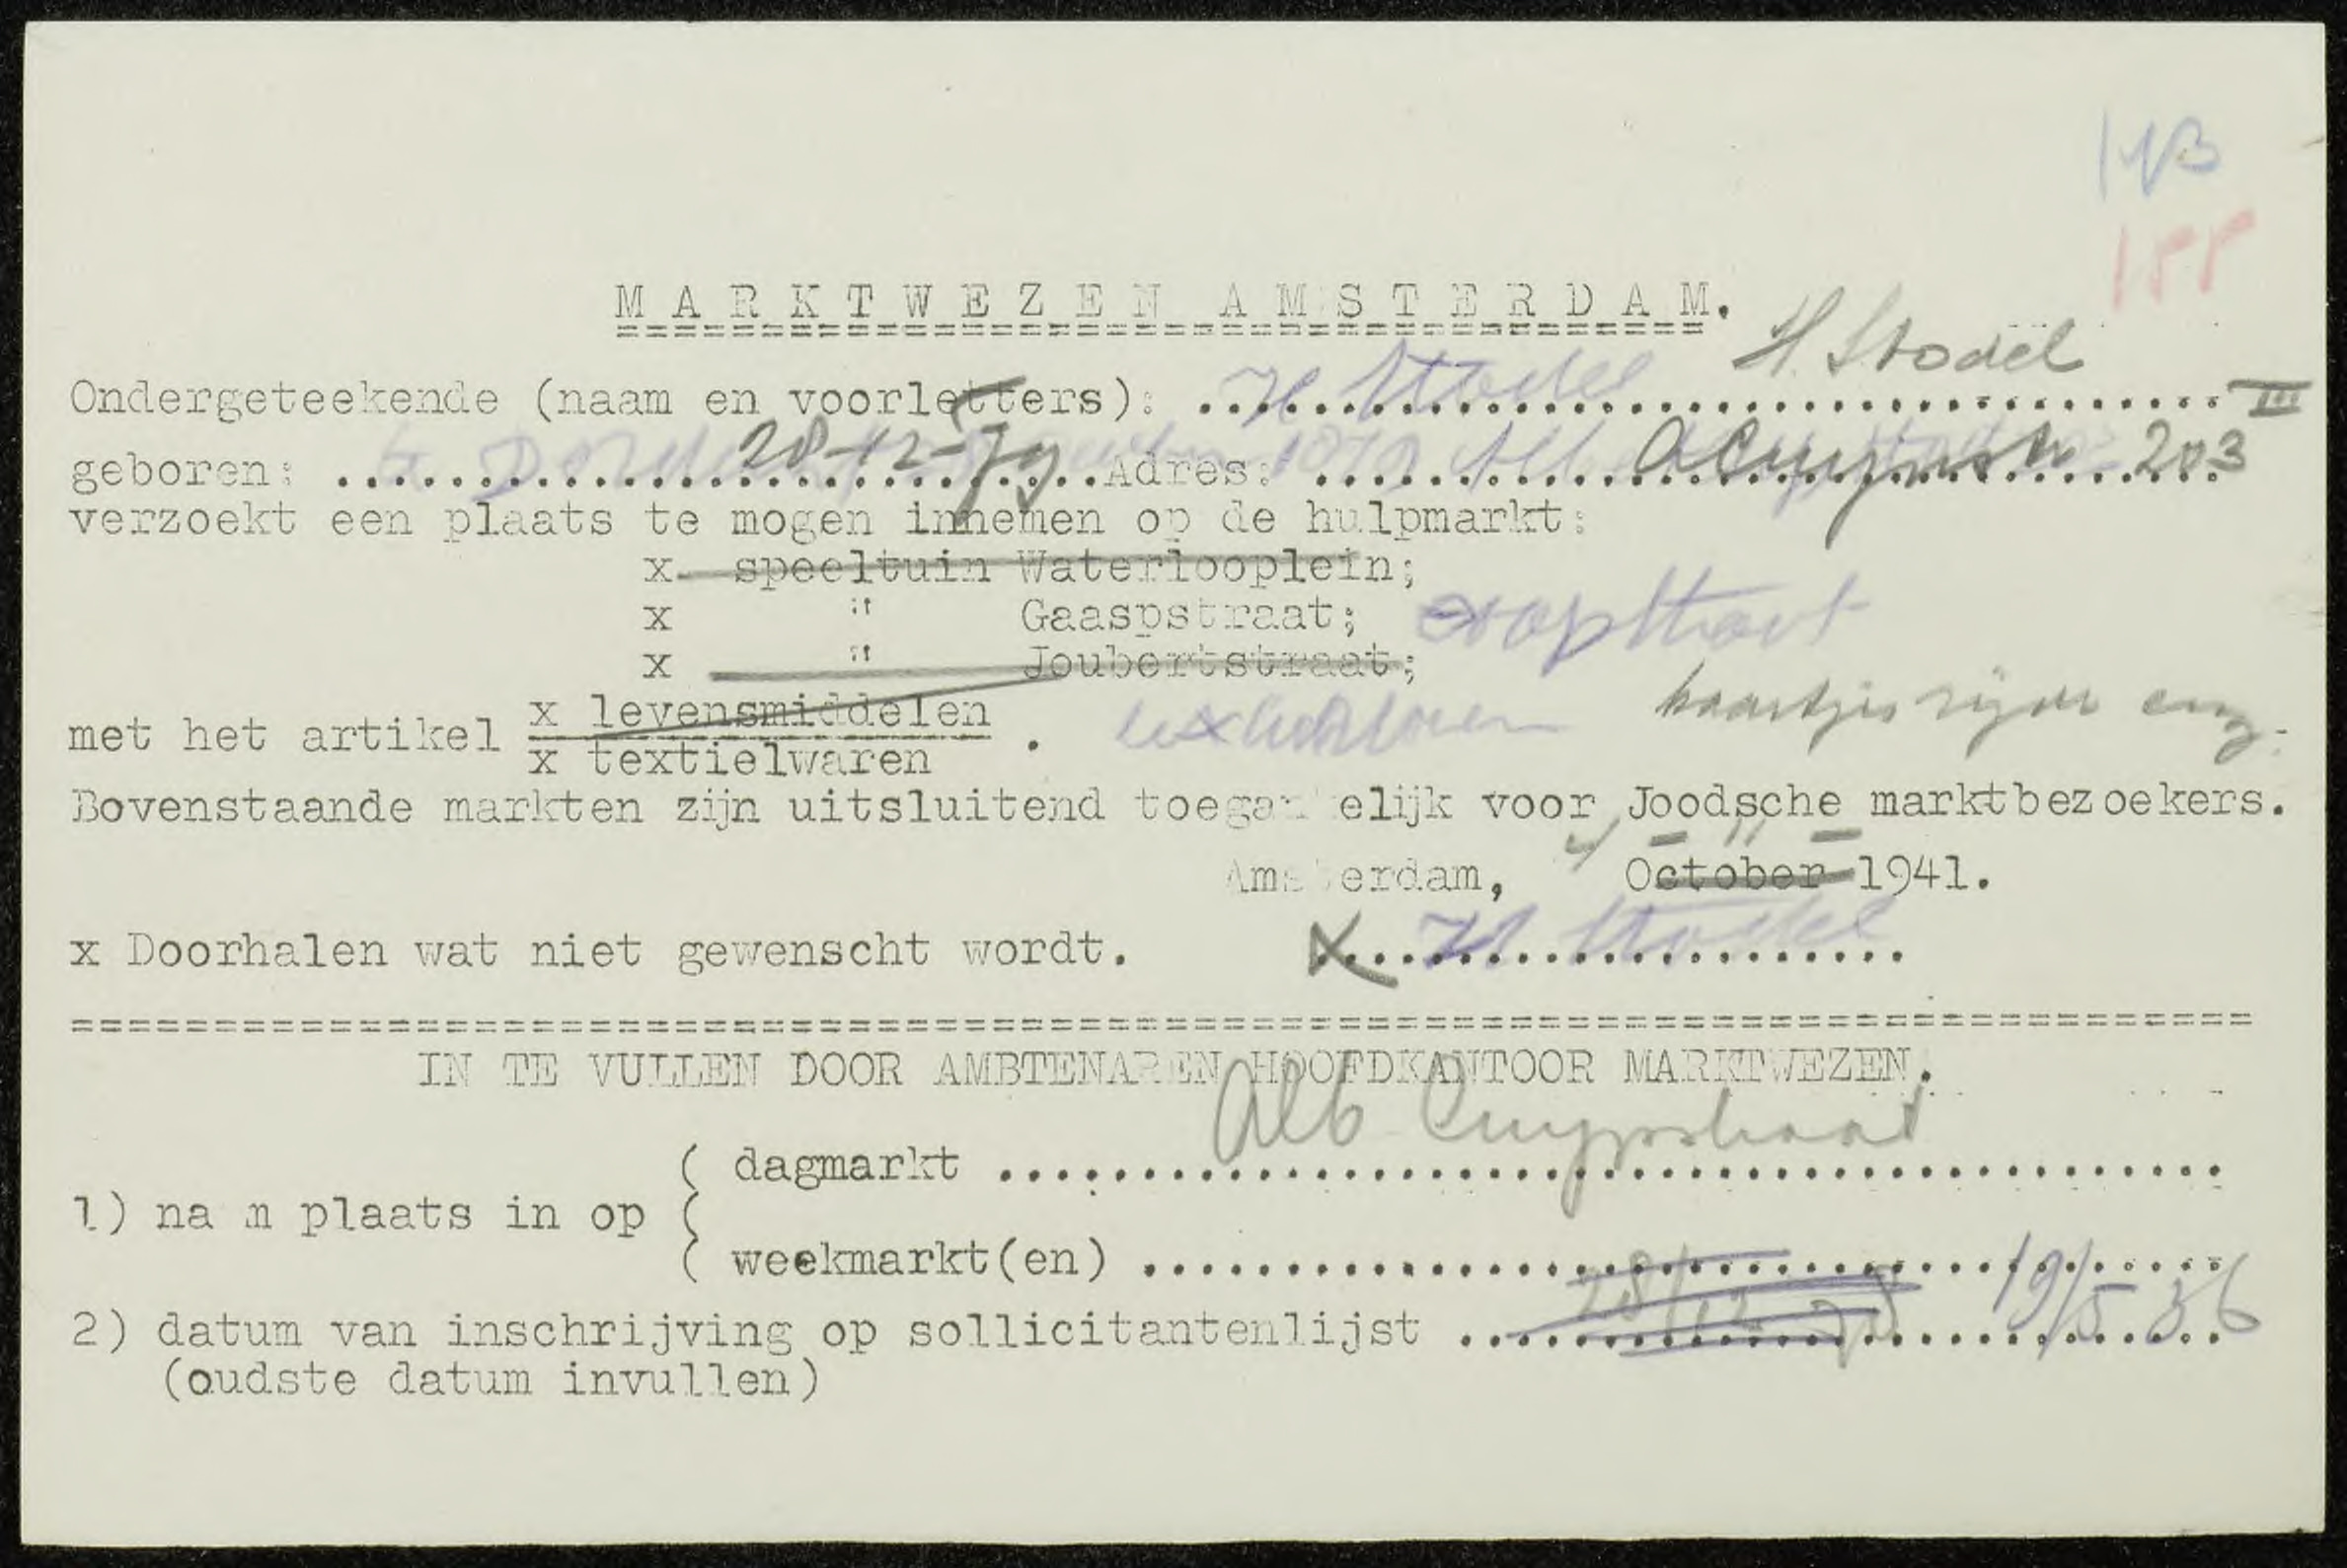 MARKTWEZEN AMSTERDAM.
H. Stodel
Ondergeteekende (naam en voorletters): H Stodel III
geboren: 28-12-79 Adres: A Cuypstr 203
verzoekt een plaats te mogen innemen op de hulpmarkt:
x speeltuin Waterlooplein;
x " Gaaspstraat;
x " Joubertstraat;
met het artikel x levensmiddelen
x textielwaren . kaartjes zijde enz.
Bovenstaande markten zijn uitsluitend toegankelijk voor Joodsche marktbezoekers.
Amsterdam, October 1941.
x Doorhalen wat niet gewenscht wordt. X H Stodel
IN TE VULLEN DOOR AMBTENAREN HOOFDKANTOOR MARKTWEZEN.
( dagmarkt Alb Cuypstraat
1) na m plaats in op (
( weekmarkt(en)
2) datum van inschrijving op sollicitantenlijst 19/5 36
(oudste datum invullen)